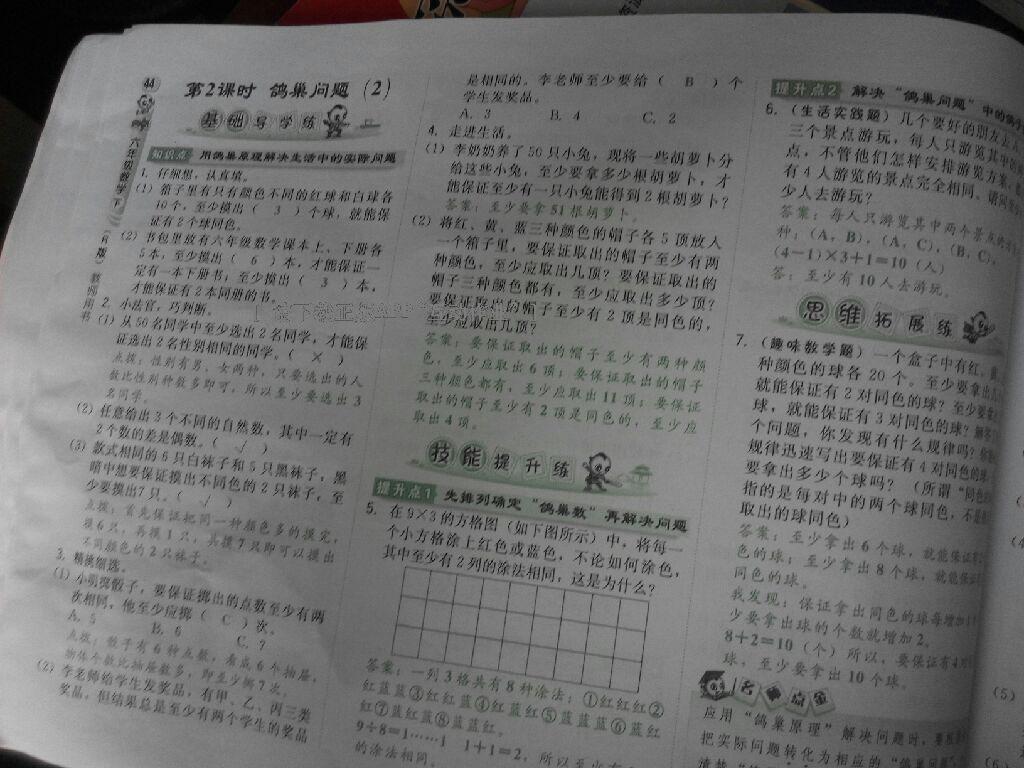 44
六年级数学 下
(R版)
教师用书
第2课时 鸽巢问题 (2)
基础导学练
知识点 用鸽巢原理解决生活中的实际问题
1. 仔细想，认真填。
(1) 箱子里有只有颜色不同的红球和白球各
10个，至少摸出（ 3 ）个球，就能保
证有2个球同色。
(2) 书包里放有六年级数学课本上、下册各
5本，至少摸出（ 6 ）本，才能保证一
定有一本下册书；至少摸出（ 3 ）本，
才能保证有2本同册的书。
2. 小法官，巧判断。
(1) 从50名同学中至少选出2名同学，才能保
证选出2名性别相同的同学。（ × ）
点拨：性别有男、女两种，只要选出的人
数比性别种数多即可，所以至少要选出3
名同学。
(2) 任意给出3个不同的自然数，其中一定有
2个数的差是偶数。（ √ ）
(3) 款式相同的6只白袜子和5只黑袜子，黑
暗中想要保证摸出不同色的2只袜子，至
少要摸出7只。（ √ ）
点拨：首先保证把同一种颜色多的摸完，
摸6只，再摸1只，共摸7只即可以摸出
不同颜色的2只袜子。
3. 精挑细选。
(1) 小明掷骰子，要保证掷出的点数至少有两
次相同，他至少应掷（ C ）次。
A. 5 B. 6 C. 7
点拨：骰子有6种点数，看成6个抽屉，
物体个数比抽屉数多，即至少掷7次。
(2) 李老师给学生发奖品，有甲、乙、丙三类
奖品，但结果总是至少有两个学生的奖品
是相同的。李老师至少要给（ B ）个
学生发奖品。
A. 3 B. 4 C. 2
4. 走进生活。
(1) 李奶奶养了50只小兔，现将一些胡萝卜分
给这些小兔，至少要拿多少根胡萝卜，才
能保证至少有一只小兔能得到2根胡萝卜？
答案：至少要拿51根胡萝卜。
(2) 将红、黄、蓝三种颜色的帽子各5顶放入
一个箱子里，要保证取出的帽子至少有两
种颜色，至少应取出几顶？要保证取出的
帽子三种颜色都有，至少应取出多少顶？
要保证取出的帽子至少有2顶是同色的，
至少应取出几顶？
答案：要保证取出的帽子至少有两种颜
色，至少应取出6顶；要保证取出的帽子
三种颜色都有，至少应取出11顶；要保证
取出的帽子至少有2顶是同色的，至少应
取出4顶。
技能提升练
提升点1 先排列确定“鸽巢数”再解决问题
5. 在9×3的方格图（如下图所示）中，将每一
个小方格涂上红色或蓝色，不论如何涂色，
其中至少有2列的涂法相同，这是为什么？
答案：一列3格共有8种涂法：①红红红②
红蓝蓝③红红蓝④红蓝红⑤蓝蓝蓝⑥蓝红
红⑦蓝红蓝⑧蓝蓝红。
9÷8=1……1 1+1=2，所以至少有
的涂法相同。
提升点2 解决“鸽巢问题”中的
6. （生活实践题）几个要好的朋友去
三个景点游玩，每人只游览其中的
点，不管他们怎样安排游览方案，
有4人游览的景点完全相同，请问
少人去游玩？
答案：每人只游览其中两个景点的
种：(A，B)，(A，C)，(B，C)
(4－1)×3＋1＝10（人）
答：至少有10人去游玩。
思维拓展练
7. （趣味数学题）一个盒子中有红、
种颜色的球各20个。至少要拿出
就能保证有2对同色的球？至少要
球，就能保证有3对同色的球？解答
个问题，你发现有什么规律吗？
规律迅速写出要保证有4对同色的
要拿出多少个球吗？（所谓“同色
指的是每对中的两个球同色，不是
取出的球同色）
答案：至少拿出6个球，就能保证有
色的球；至少拿出8个球，就能保证
同色的球。
我发现：保证拿出同色的球每增加1
少要拿出球的个数就增加2。
8＋2＝10（个）所以，要保证有4对
球，至少要拿出10个球。
名师点金
应用“鸽巢原理”解决问题时，要
把实际问题转化为相应的“鸽巢
(5)